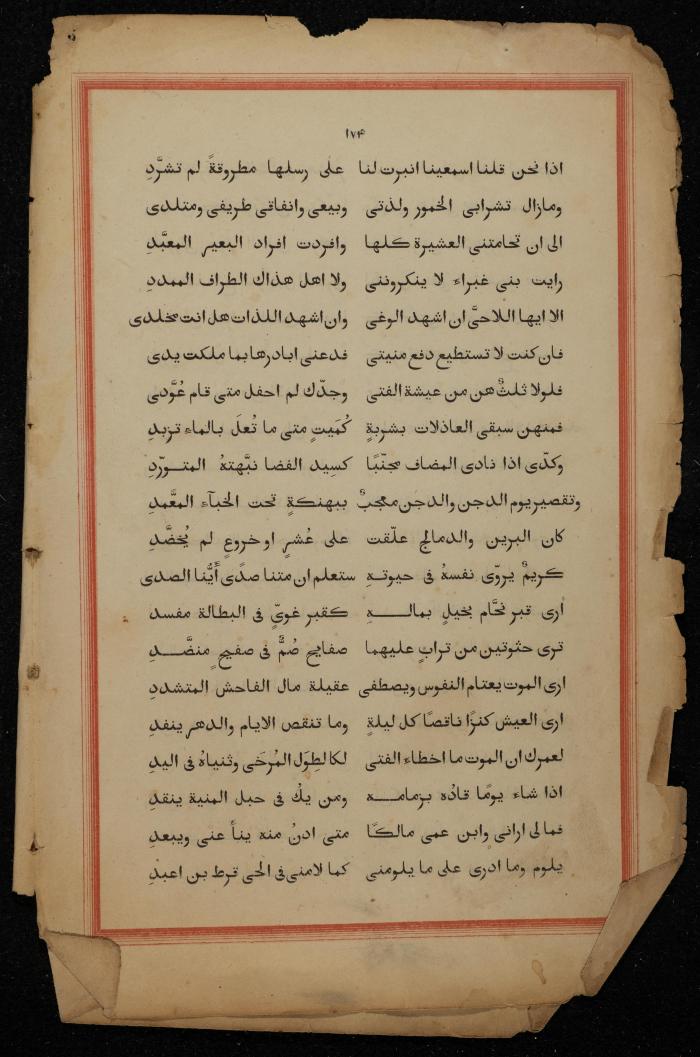 ۱۷۴
اذا نحن قلنا اسمعينا انبرت لنا على رسلها مطروقةً لم تشدَّدِ
ومازال تشرابى الخمور ولذتى وبيعى وانفاقى طريفى ومتلدى
الى ان تحامتنى العشيرة كلها وافردت افراد البعير المعبَّدِ
رايت بنى غبراء لا ينكروننى ولا اهل هذاك الطراف الممددِ
الا ايها اللاحىَّ ان اشهد الوغى وان اشهد اللذات هل انت مخلدى
فان كنت لا تستطيع دفع منيتى فدعنى ابادرها بما ملكت يدى
فلولا ثلثٌ هن من عيشة الفتى وجدّك لم احفل متى قام عُوَّدى
فمنهن سبقى العاذلات بشربةٍ كُمَيتٍ متى ما تُعلَ بالماء تزبدِ
وكرّى اذا نادى المضاف مجنّبًا كسِيد الفضا نبَّهتهُ المتورّدِ
وتقصير يوم الدجن والدجن معجبٌ ببهنكةٍ تحت الخبآء المعَّمدِ
كان البرين والدمالج علّقت على عُشرٍ او خروعٍ لم يُخضَّدِ
كريمٌ يروّى نفسهُ فى حيوتهِ ستعلم ان متنا صدًى أيُّنا الصدى
ارى قبر نحَّام بخيلٍ بمالهِ كقبر غوىٍّ فى البطالة مفسد
ترى حثوتين من ترابٍ عليهما صفايح صُمٌّ فى صفيحٍ منضَّدِ
ارى الموت يعتام النفوس ويصطفى عقيلة مال الفاحش المتشددِ
ارى العيش كنزًا ناقصًا كل ليلةٍ وما تنقص الايام والدهر ينفدِ
لعمرك ان الموت ما اخطاء الفتى لكالطِوَل المُرخَى وثنياهُ فى اليدِ
اذا شاء يومًا قادُه بزمامه ومن يكُ فى حبل المنية ينقدِ
فمالى ارانى وابن عمى مالكًا متى ادنُ منه ينأ عنى ويبعدِ
يلوم وما ادرى على ما يلومنى كما لامنى فى الحى قرط بن اعبدِ